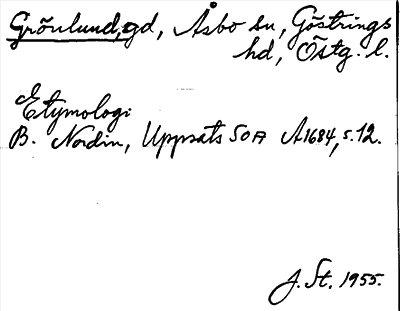 Grönlund, gd, Åsbo sn, Göstrings
hd, Östg. l.
Etymologi
B. Nordin, Uppsats SOA A1684, s. 12.
J. St. 1955.